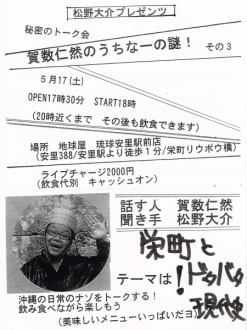 松野大介プレゼンツ
秘密のトーク会
賀数仁然のうちなーの謎！ その３
５月17（土）
OPEN17時30分　START18時
（20時近くまで　その後も飲食できます）
場所　地球屋　琉球安里駅前店
（安里388/安里駅より徒歩１分/栄町リウボウ横）
ライブチャージ2000円
（飲食代別　キャッシュオン）
話す人　賀数仁然
聞き手　松野大介
テーマは
栄町と
ドタバタ
現代史！
沖縄の日常のナゾをトークする！
飲み食べながら楽しもう
（美味しいメニューいっぱいだヨ）